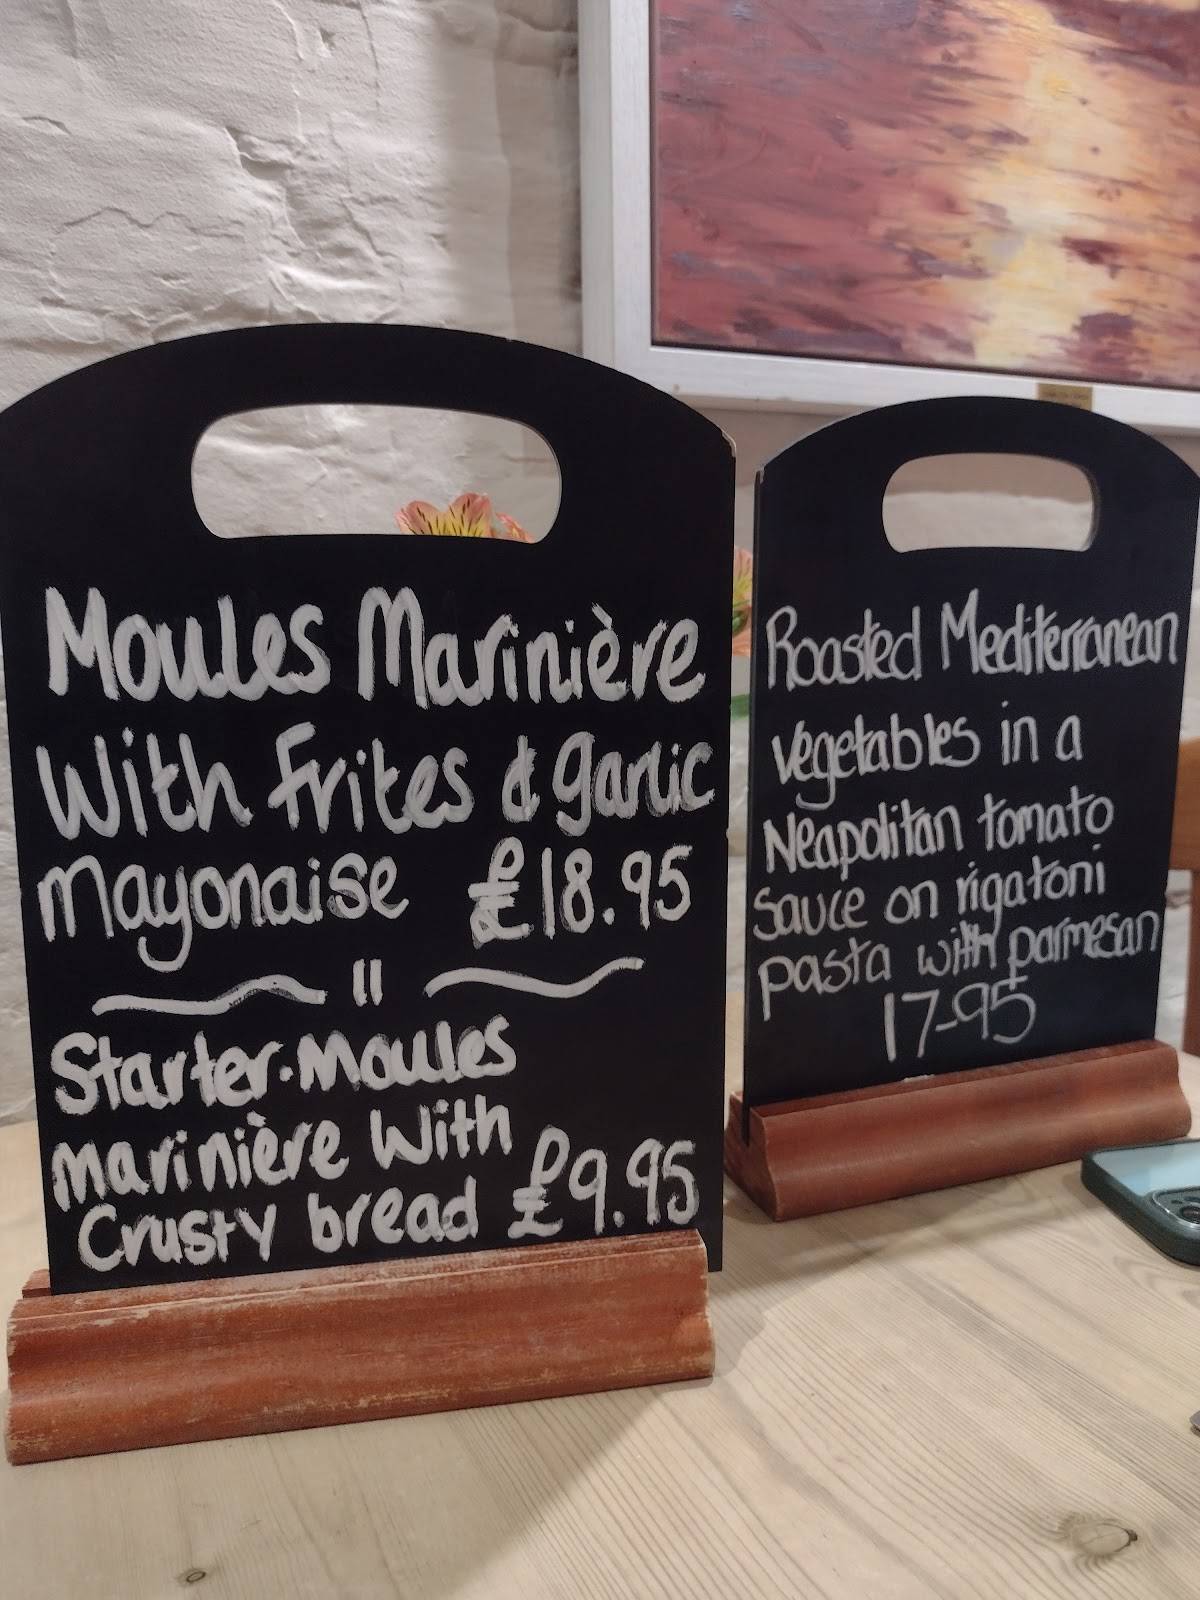 Moules Marinière
With frites & garlic
Mayonaise £18.95
Starter. Moules
marinière With
Crusty bread £9.95
Roasted Mediterranean
vegetables in a
Neapolitan tomato
sauce on rigatoni
pasta with parmesan
17-95